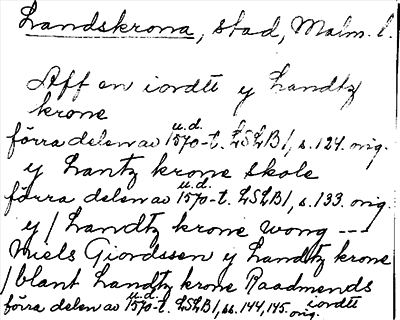 Landskrona, stad, Malm. l.
Aff en iordtt y Landtz
krone
förra delen av u.d. 1570-t. LSLB1, s. 124. orig.
y Lantz krone skole
förra delen av u.d. 1570-t. LSLB1, s. 133. orig.
y / Landtz krone wong ---
Niels Giordssen y Landtz krone
/ blant Landtz krone Raadmends iordtt
förra delen av u.d. 1570-t. LSLB1, ss. 144, 145. orig.